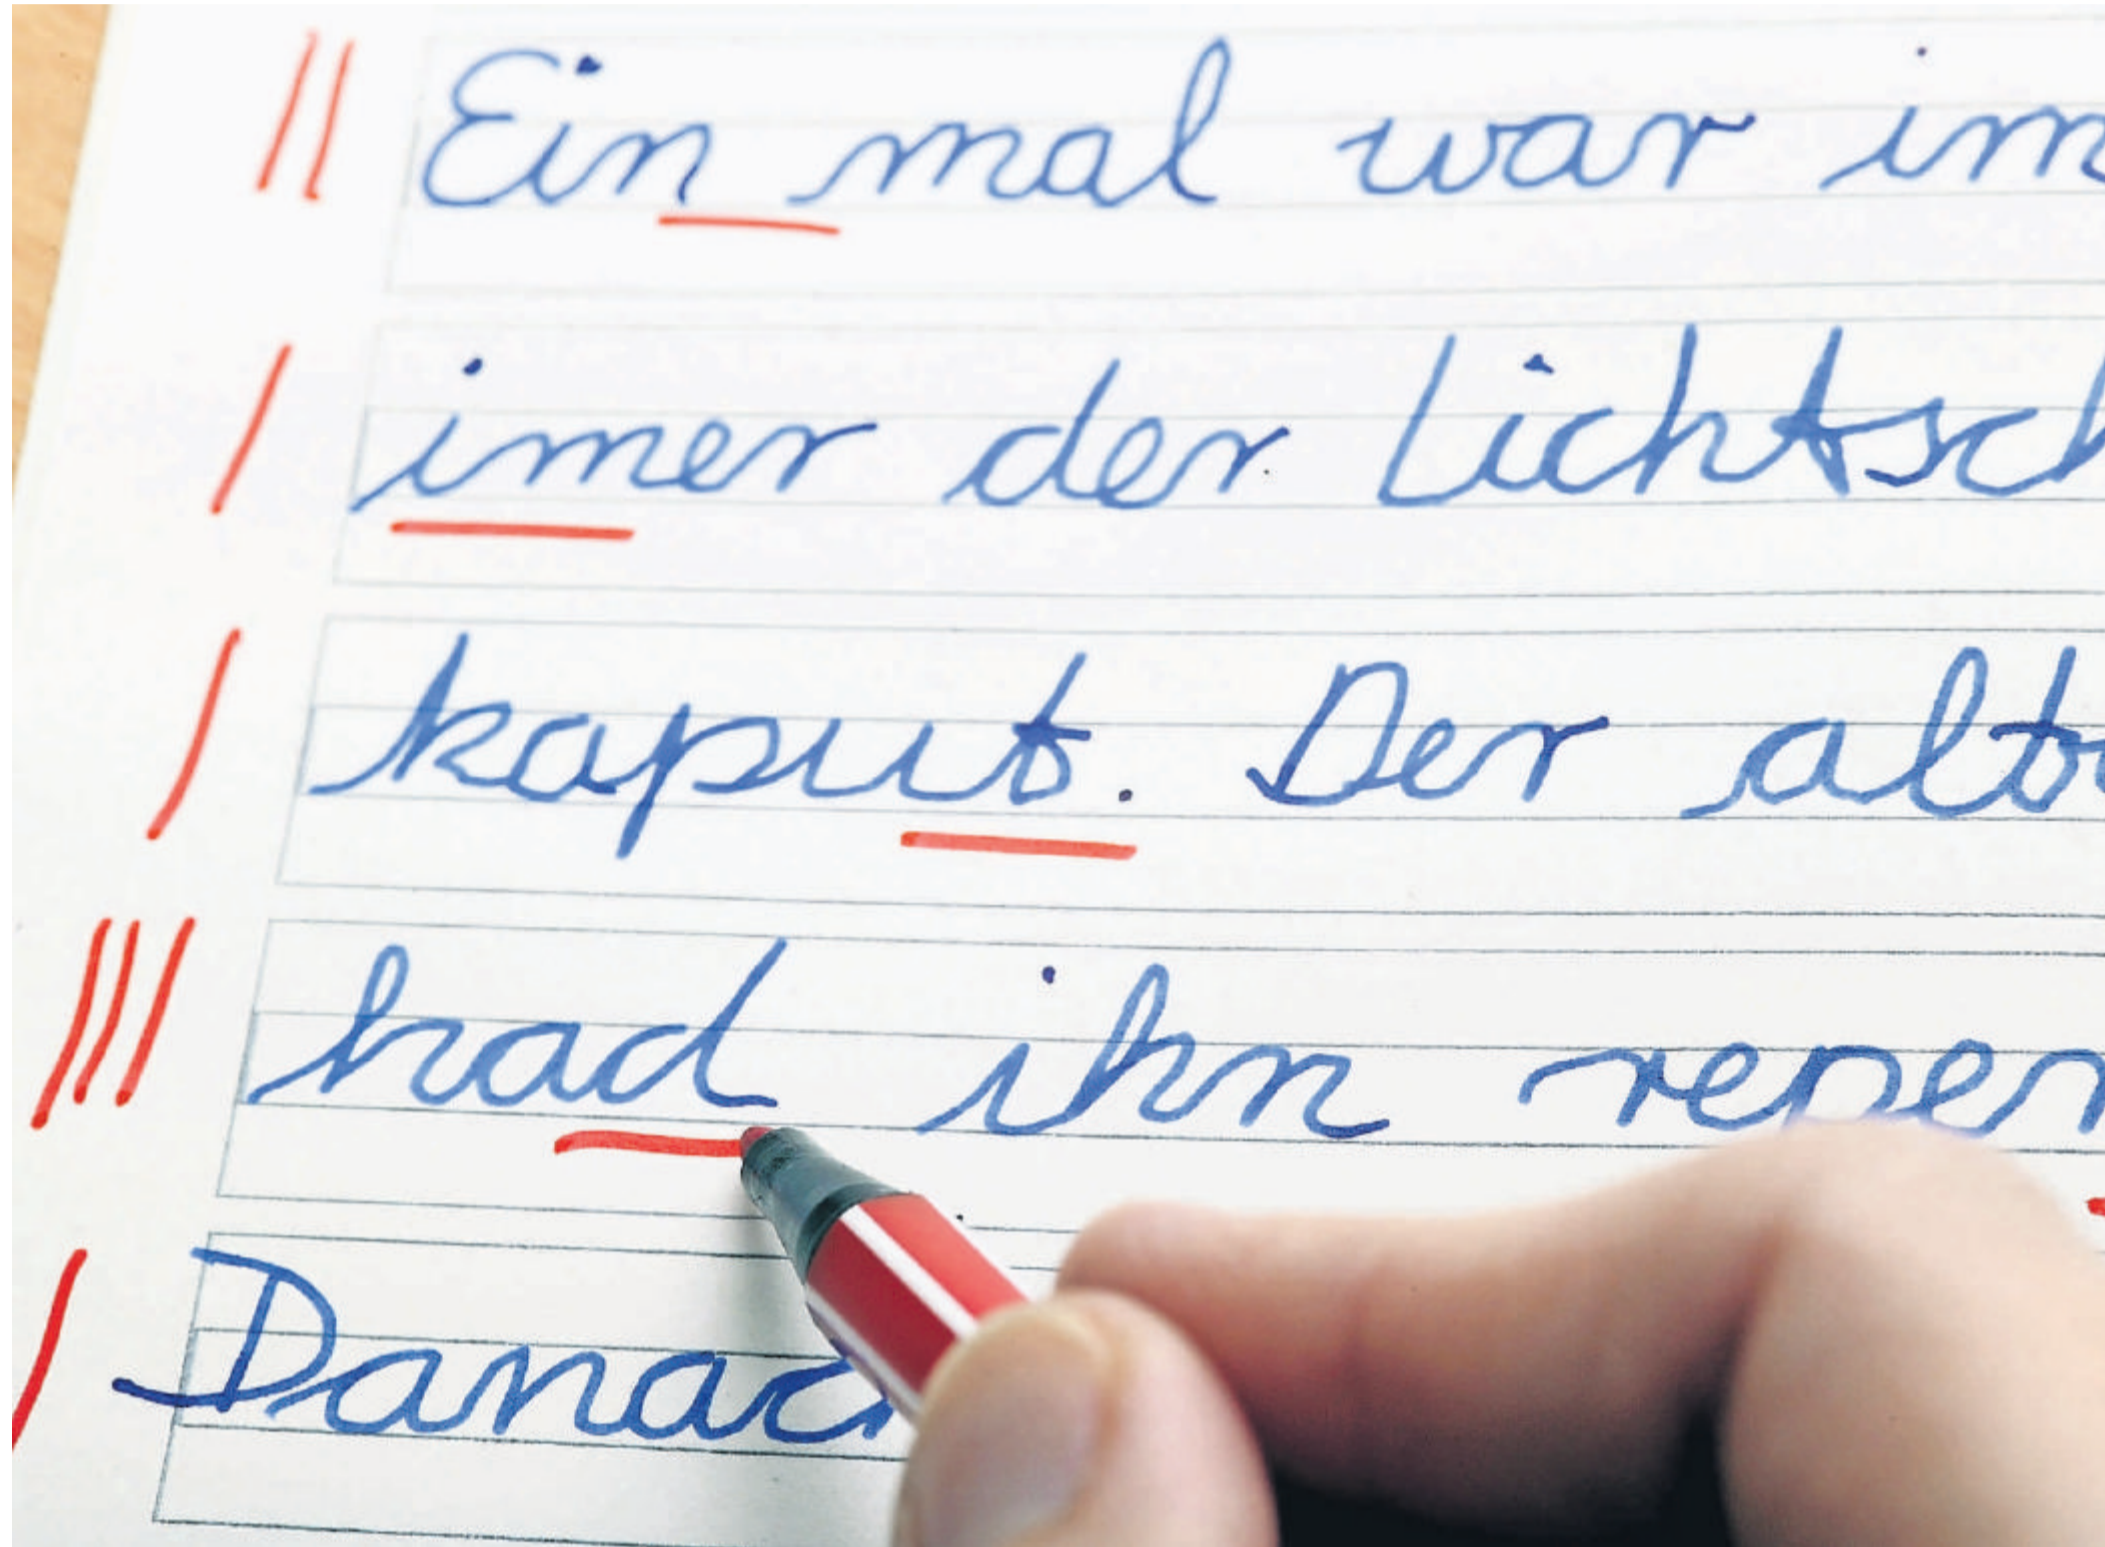 Ein mal war im
imer der Lichtsch
kaput. Der alte
had ihn reper
Danac